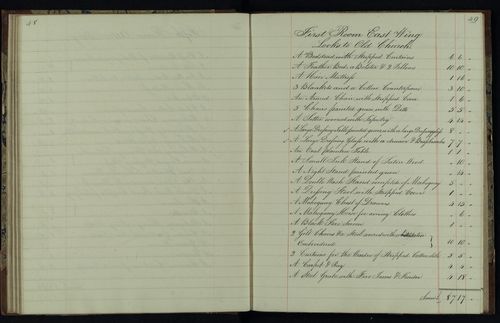 48
49
First Room East Wing
Looks to Old Church
A Bedstead with Stripped Curtains 6 6 -
A Feather Bed, a Bolster & 2 Pillows 10 10 -
A Hair Mattress 1 16 -
3 Blankets and a Cotton Counterpane 3 10 -
An Armed Chair with Stripped Cover 1 6 -
3 Chairs painted green with Ditto 5 5 -
A Settee covered with Tapestry 4 15 -
A Large Dressing Table painted green with a large 8 -
A Large Dressing Glass with a 7 7 -
An Oval Table 1 1 -
A Small Sink Stand of Wood - 10 -
A Night Stand painted green - 14 -
A Double Wash Stand complete of Mahogany 5 - -
A Dressing Stool with Stripped Cover 1 -
A Mahogany Chest of Drawers 4 15 -
A Mahogany Horse for airing Clothes - 6 -
A Black Fire Screen 1 -
2 Gilt Chairs & a Stool covered with
Embroidered 10 10 -
2 Curtains for the Window of Stripped Cotton 3 5 -
A Carpet & Rug 4 4 -
A Steel Grate with Fire Irons & Fender 4 18 -
87 17 -